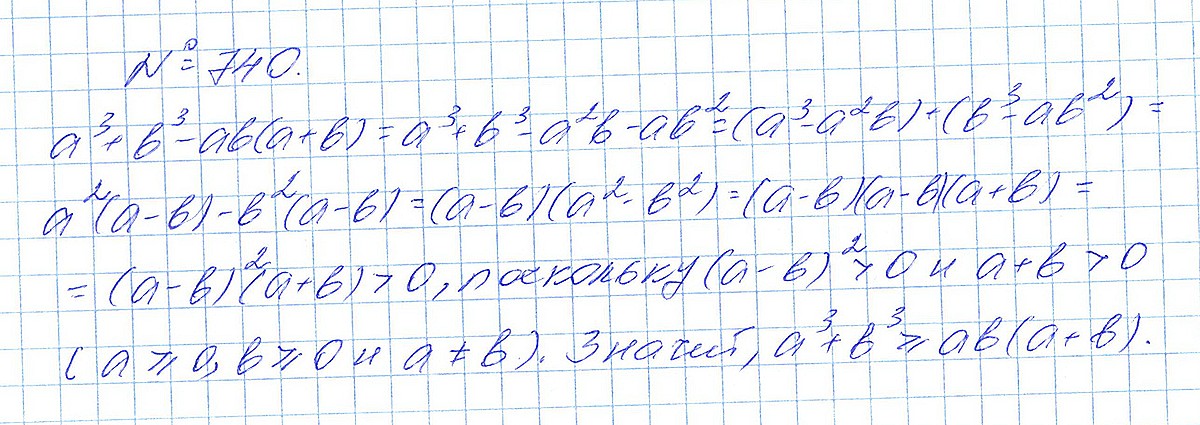 № 740.
a³+b³-ab(a+b)=a³+b³-a²b-ab²=(a³-a²b)+(b³-ab²)=
a²(a-b)-b²(a-b)=(a-b)(a²-b²)=(a-b)(a-b)(a+b)=
=(a-b)²(a+b)>0, поскольку (a-b)²>0 и a+b>0
(a⩾0, b⩾0 и a≠b). Значит, a³+b³⩾ab(a+b).